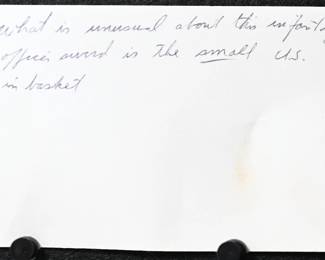 what is unusual about this infantry
officers sword is the small U.S.
in basket